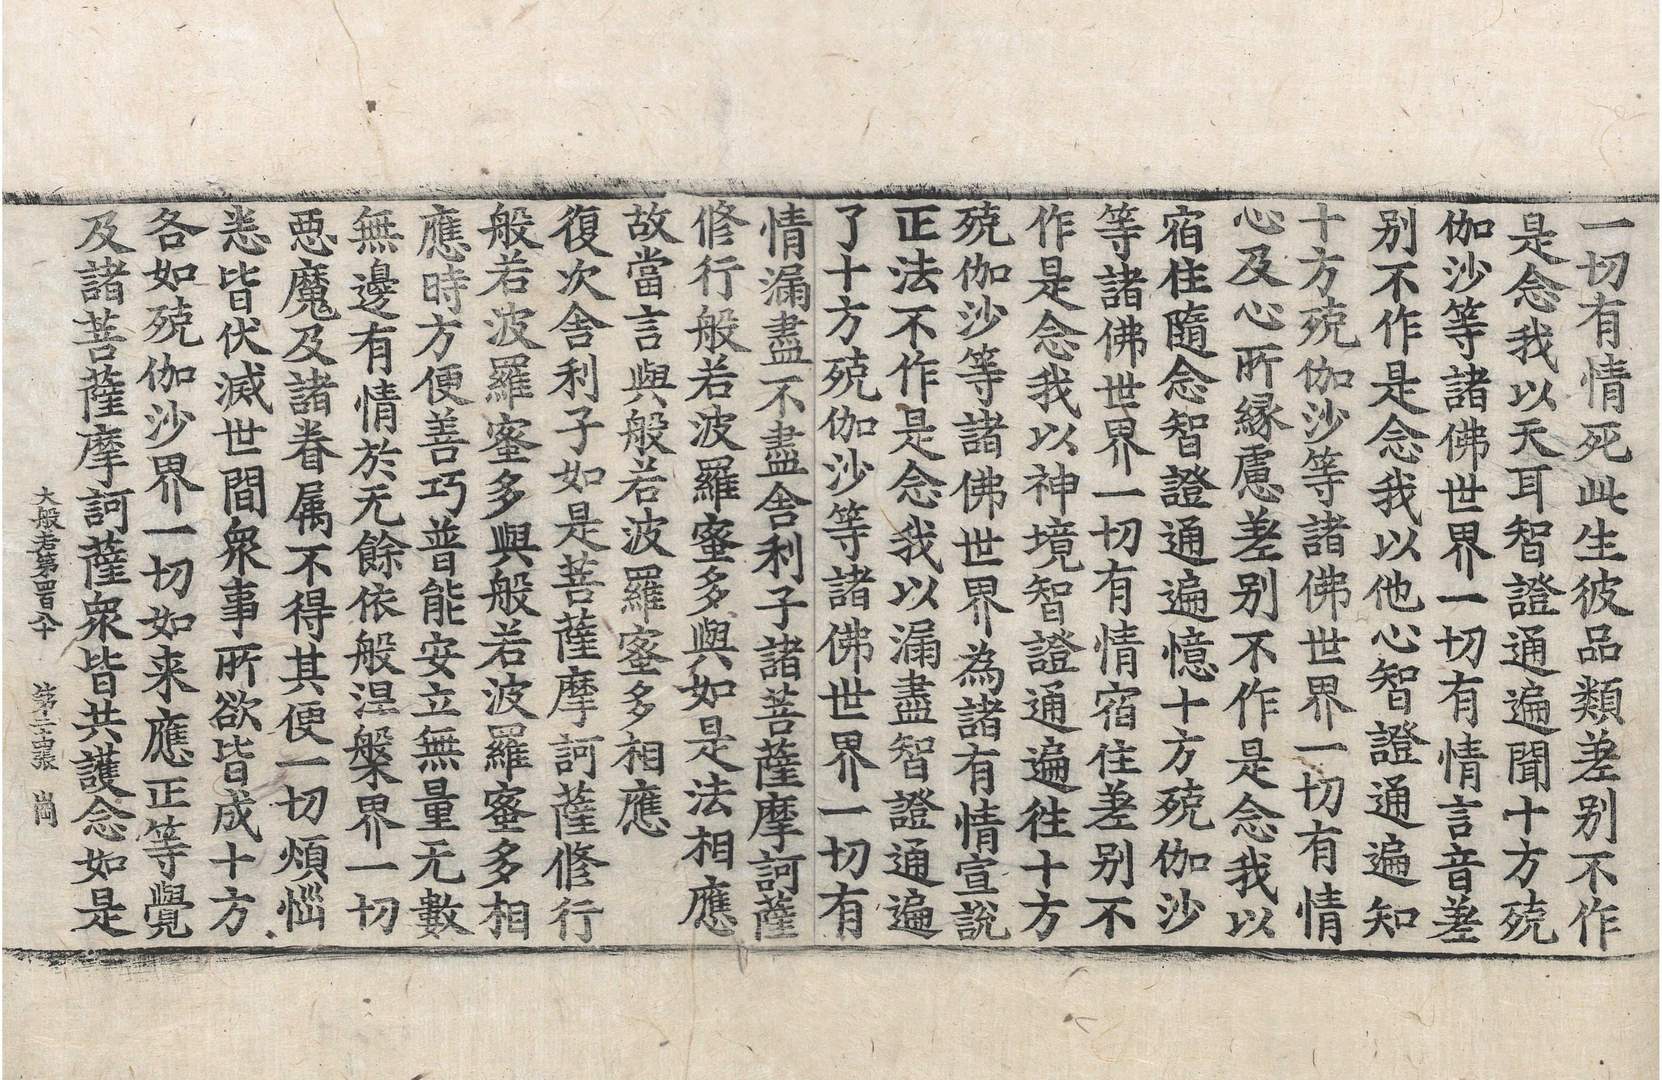 一切有情死此生彼品類差别不作
是念我以天耳智證通遍聞十方殑
伽沙等諸佛世界一切有情言音差
别不作是念我以他心智證通遍知
十方殑伽沙等諸佛世界一切有情
心及心所緣慮差别不作是念我以
宿住隨念智證通遍憶十方殑伽沙
等諸佛世界一切有情宿住差别不
作是念我以神境智證通遍往十方
殑伽沙等諸佛世界為諸有情宣說
正法不作是念我以漏盡智證通遍
了十方殑伽沙等諸佛世界一切有
情漏盡不盡舍利子諸菩薩摩訶薩
修行般若波羅蜜多與如是法相應
故當言與般若波羅蜜多相應
復次舍利子如是菩薩摩訶薩修行
般若波羅蜜多與般若波羅蜜多相
應時方便善巧普能安立無量无數
無邊有情於无餘依般涅槃界一切
惡魔及諸眷属不得其便一切煩惱
悉皆伏滅世間眾事所欲皆成十方
各如殑伽沙界一切如来應正等覺
及諸菩薩摩訶薩眾皆共護念如是
大般若第四百八十 第二十四張 崗